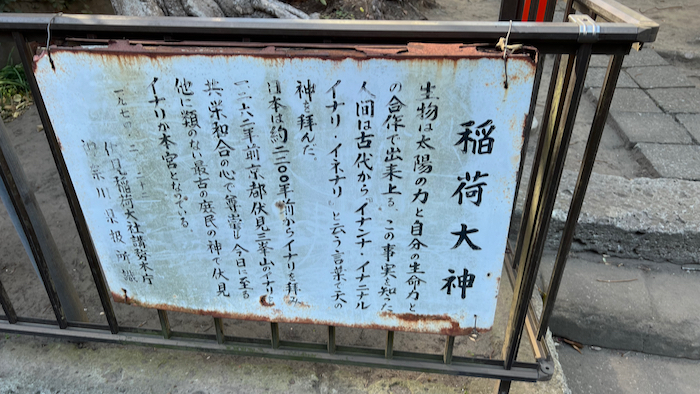 稲荷大神
生物は太陽の力と自分の生命力と
の合作で出来上る、この事実を知った
人間は古代からイナンナ・イナニナル
イナリ イネナリ と云う言葉で天の
神を拝んだ
日本は約二二〇〇年前からイナリを拝み
一二六二年前京都伏見三峯山のイナリ
共栄和合の心で尊崇し今日に至る
他に類のない最古の庶民の神で伏見
イナリが本宮となっている。
一九七
伏見稲荷大社講務本庁
神奈川県